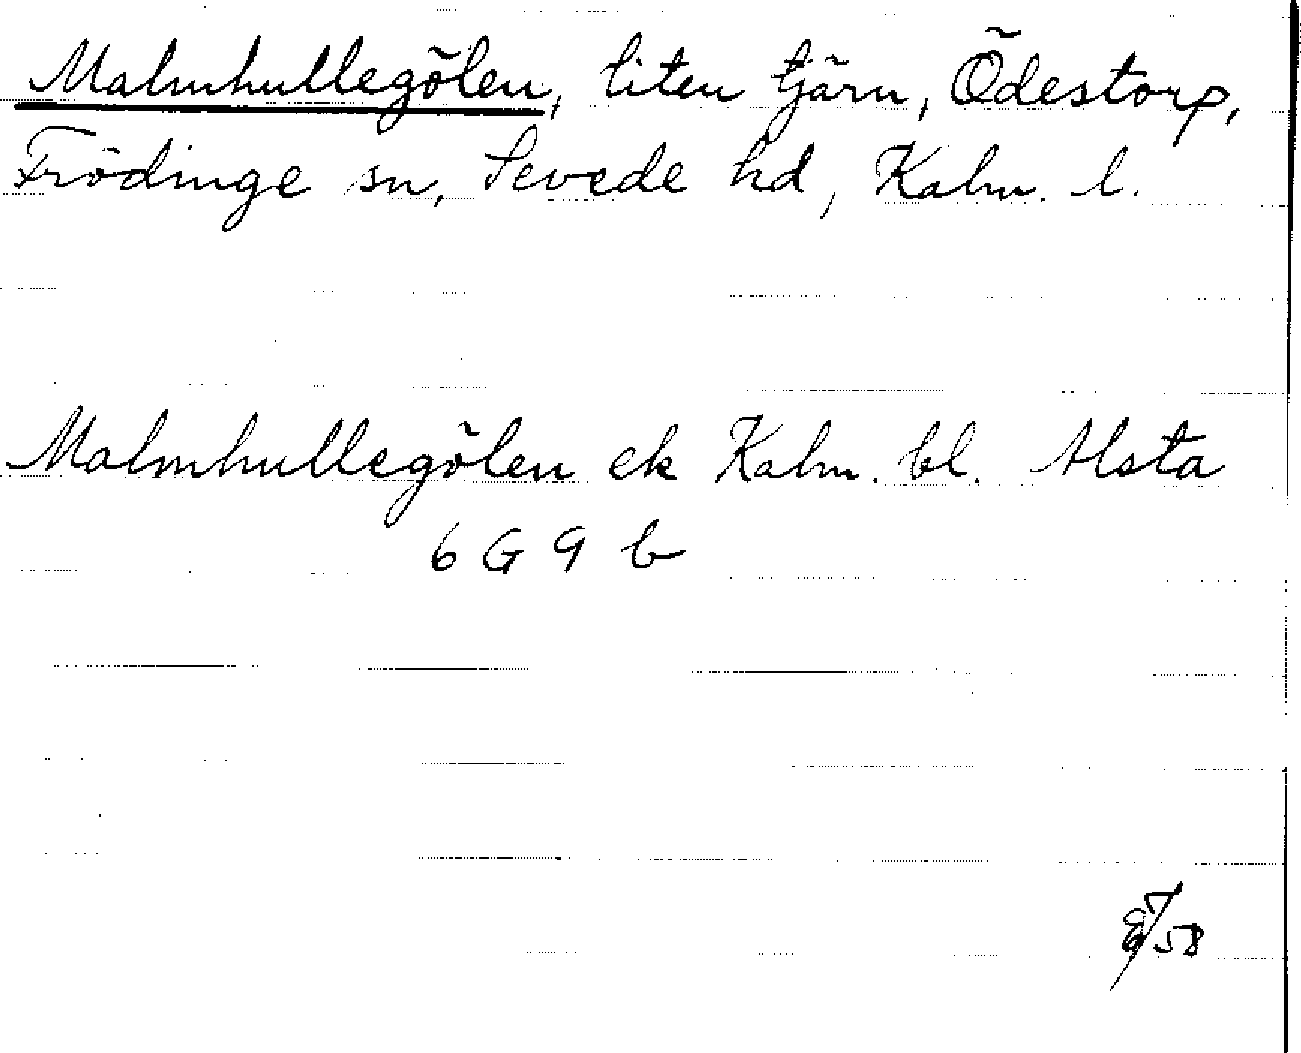 Malmhullegölen, liten tjärn, Ödestorp,
Frödinge sn, Sevede hd, Kalm. l.
Malmhullegölen ek Kalm. bl. Alsta
6 G 9 b